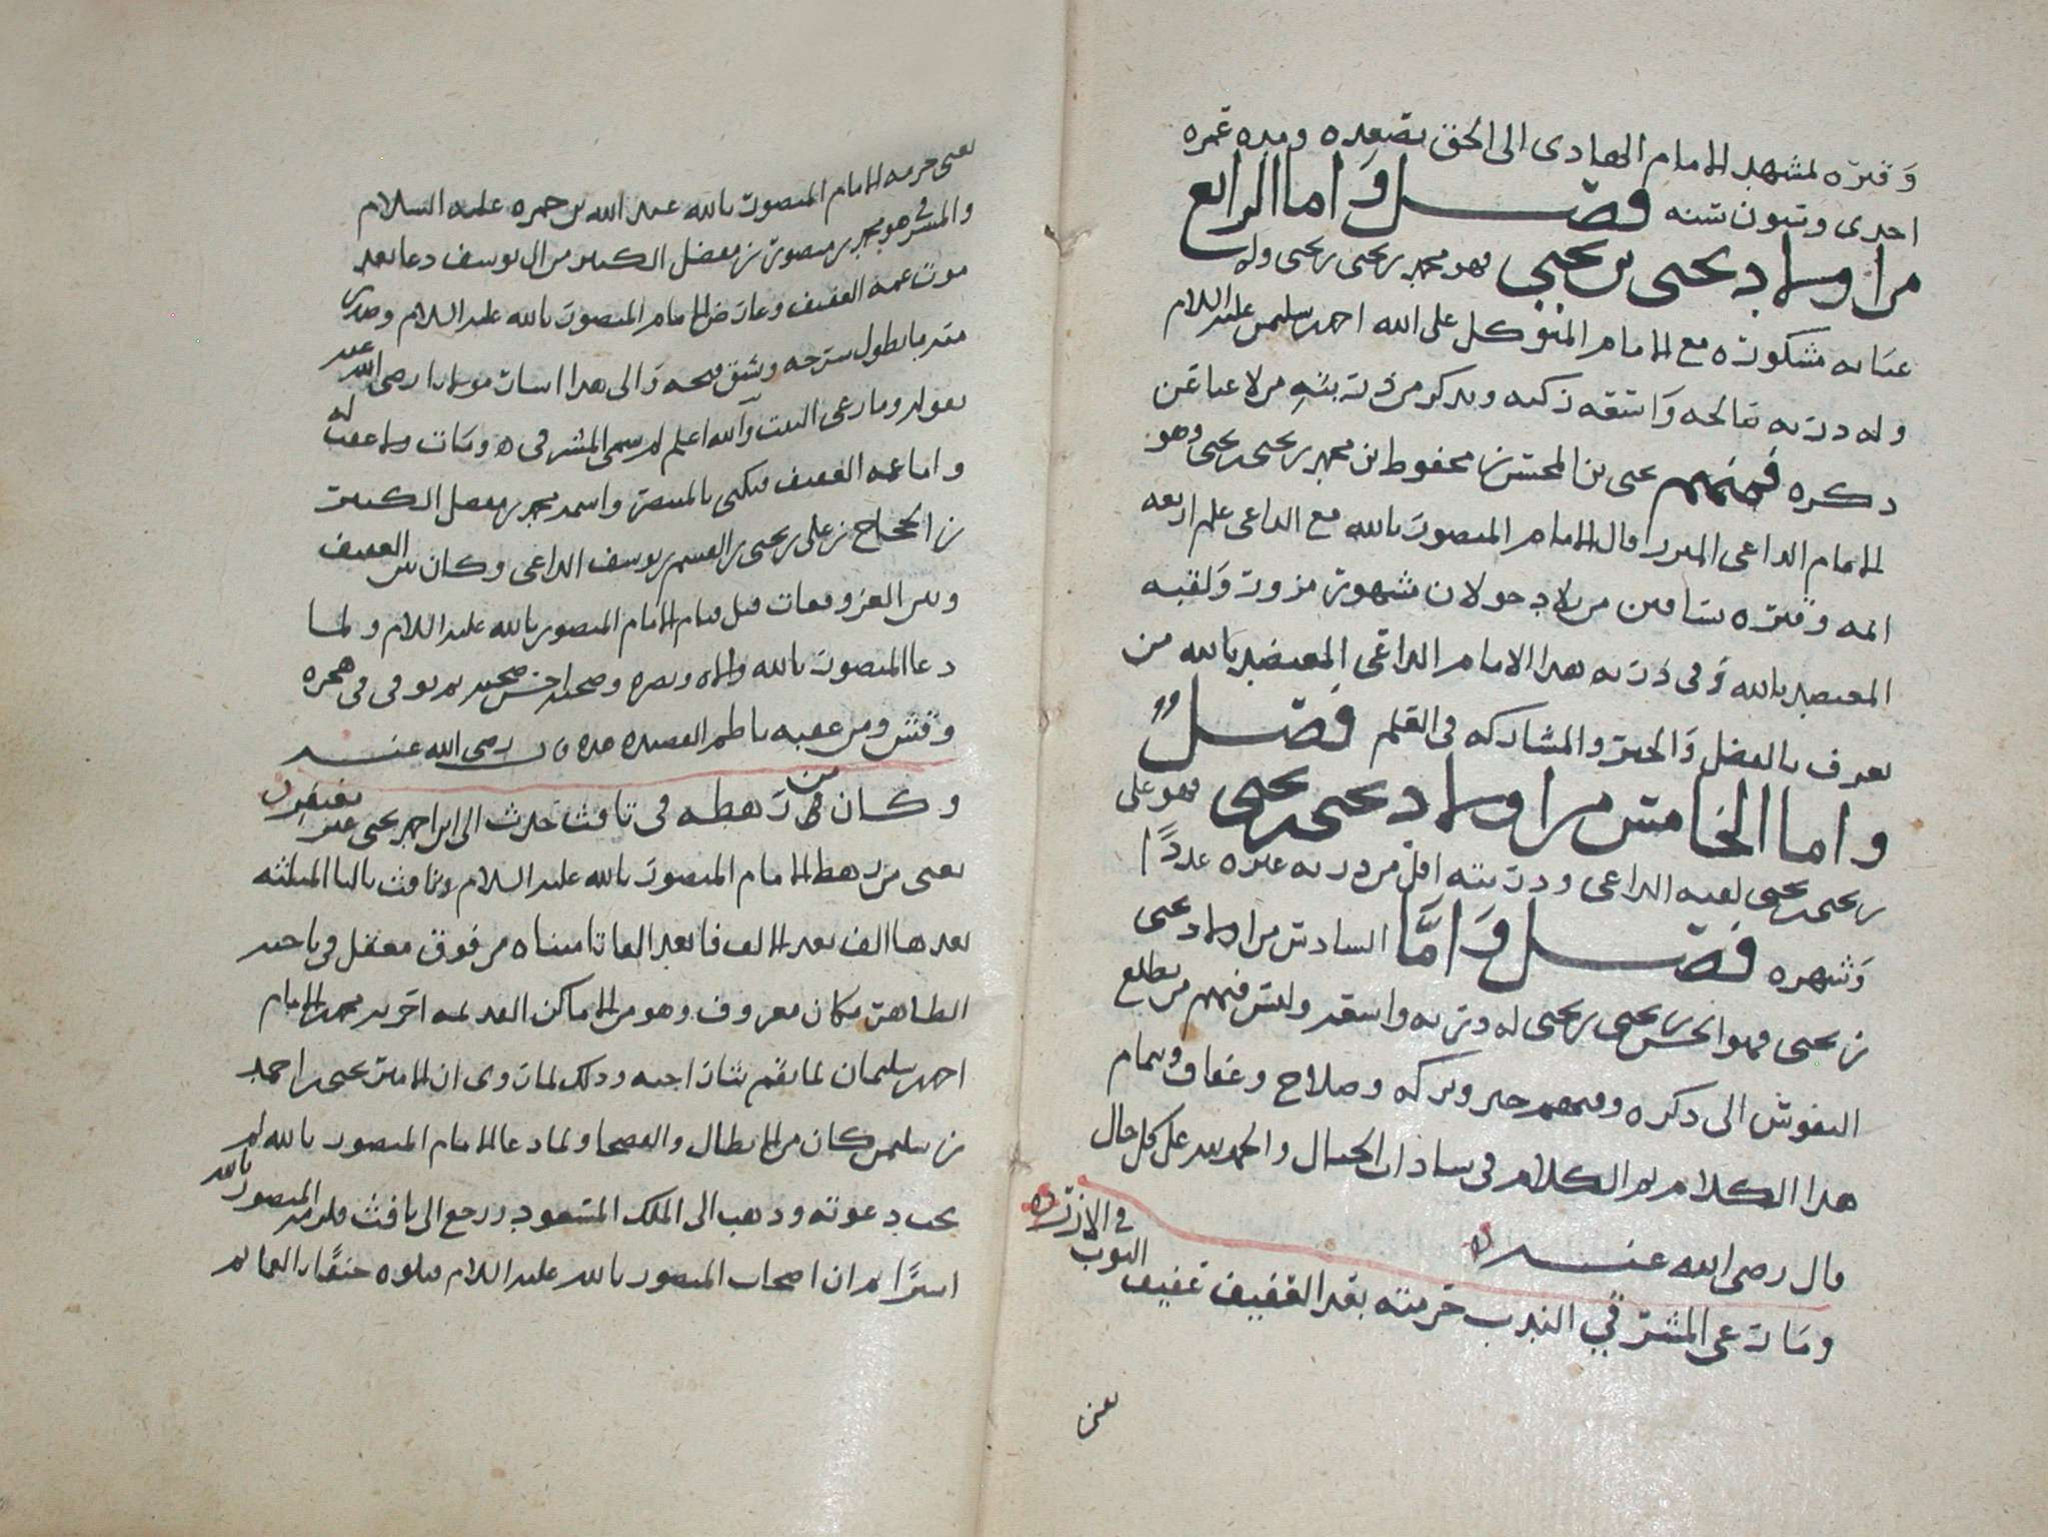 وقبره لمشهد الامام الهادى الى الحق بصعده ومده عمره
احدى وستون سنه فصل واما الرابع
من اولاد يحيى بن يحيى فهو محمد بن يحيى بن يحيى وله
عنايه مشكوره مع الامام المتوكل على الله احمد بن سليمن عليه السلام
وله ذريه صالحه واسعه زكيه ويذكر من ذريته من لا غبا عن
ذكره فمنهم يحيى بن المحسن بن محفوظ بن محمد بن يحيى بن يحيى وهو
الامام الداعى قال الامام المنصور بالله مع الداعى علم اربعه
ائمه وقبره بساقين من بلاد خولان مشهور مزور ولقبه
المعتضد بالله وفى ذريه هذا الامام الداعى المعتضد بالله من
يعرف بالفضل والخير والمشاركه فى العلم فصل
واما الخامس من اولاد يحيى بن يحيى فهو على
بن يحيى بن يحيى لقبه الداعى وذريته اقل من ذريه غيره عددا
وشهره فصل واما السادس من اولاد يحيى
بن يحيى فهو الحسن بن يحيى بن يحيى له ذريه واسعه وليس فيهم من تطلع
النفوس الى ذكره وفيهم خير وبركه وصلاح وعفاف وتمام
هذا الكلام تم الكلام فى سادات الجبال والحمد لله على كل حال
قال رضى الله عنه
وما رعى المشرقي الندب حرمته بعد العفيف عفيف الثوب فى الازر
يعنى
يعنى حرمه الامام المنصور بالله عبد الله بن حمزه عليه السلام
والمشرقى هو محمد بن منصور بن مفضل الكبير من ال يوسف دعا بعد
موت عمه العفيف وعارض الامام المنصور بالله عليه السلام وصدى
رضى الله عنه
بقوله وما رعى البيت والله اعلم لم سمى المشرقى ومات ولا عقب له
واما عمه العفيف فيكنى بالمنصر واسمه محمد بن مفضل الكبير
بن الحجاج بن على بن يحيى بن القسم بن يوسف الداعى وكان بين العفيف
وبين الغز وقعات قبل قيام الامام المنصور بالله عليه السلام ولما
دعا المنصور بالله والاه ونصره وصحبه احسن صحبه ثم توفى فى هجره
وقش ومن عقبه ناظم القصيده هذه رضى الله عنه
وكان من رهطه فى ثافث حدث الى ابن احمد يحيى غير مغتفر
يعنى من رهط الامام المنصور بالله عليه السلام وثافث بالثا المثلثه
بعدها الف بعد الالف فا بعد الفا ثا مثلثه من فوق معقل فى ناحيه
الظاهر مكان معروف وهو من الاماكن القديمه اخربه محمد بن الامام
احمد بن سليمان لما نقم بثار اخيه وذلك لما روى ان الامير يحيى بن احمد
بن سليمن كان من الابطال والفصحا ولما دعا الامام المنصور بالله لم
يجب دعوته وذهب الى الملك المسعود ورجع الى ثافث المنصور بالله
اسيرا ثم ان اصحاب المنصور بالله عليه السلام قتلوه خنقا بالعمائم